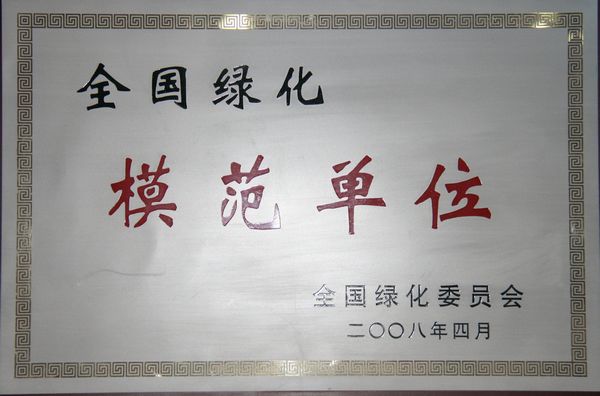 全国绿化
模范单位
全国绿化委员会
二〇〇八年四月